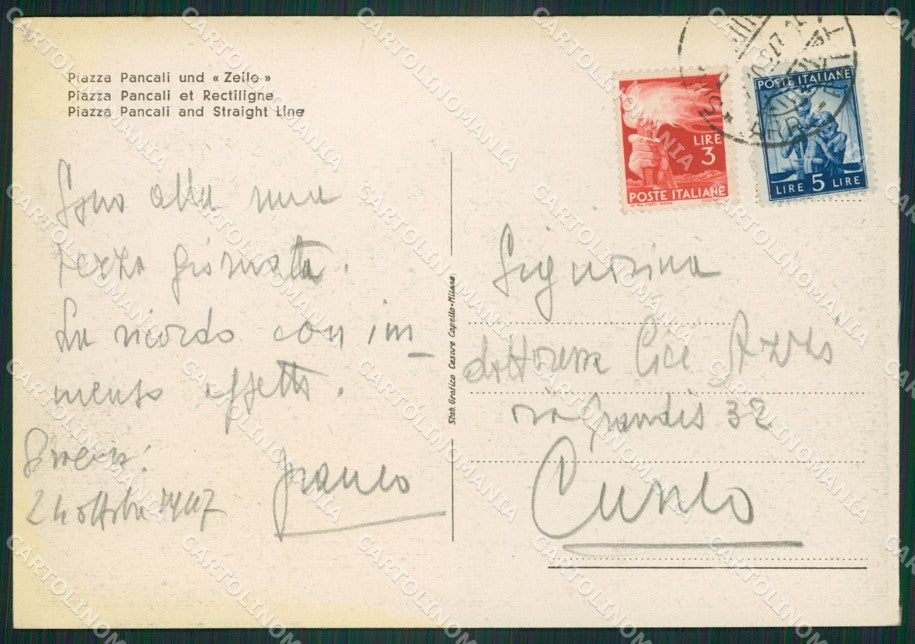 Piazza Pancali und « Zeile »
Piazza Pancali et Rectiligne
Piazza Pancali and Straight Line
Sono alla mia
terza giornata.
La ricordo con im-
menso affetto.
Siracusa
24 ottobre 1947
Franco
Stab. Grafico Cesare Capello-Milano
LIRE
3
POSTE ITALIANE
POSTE ITALIANE
LIRE 5 LIRE
Signorina
dottoressa
via 32
Cuneo
CARTOLINOMANIA